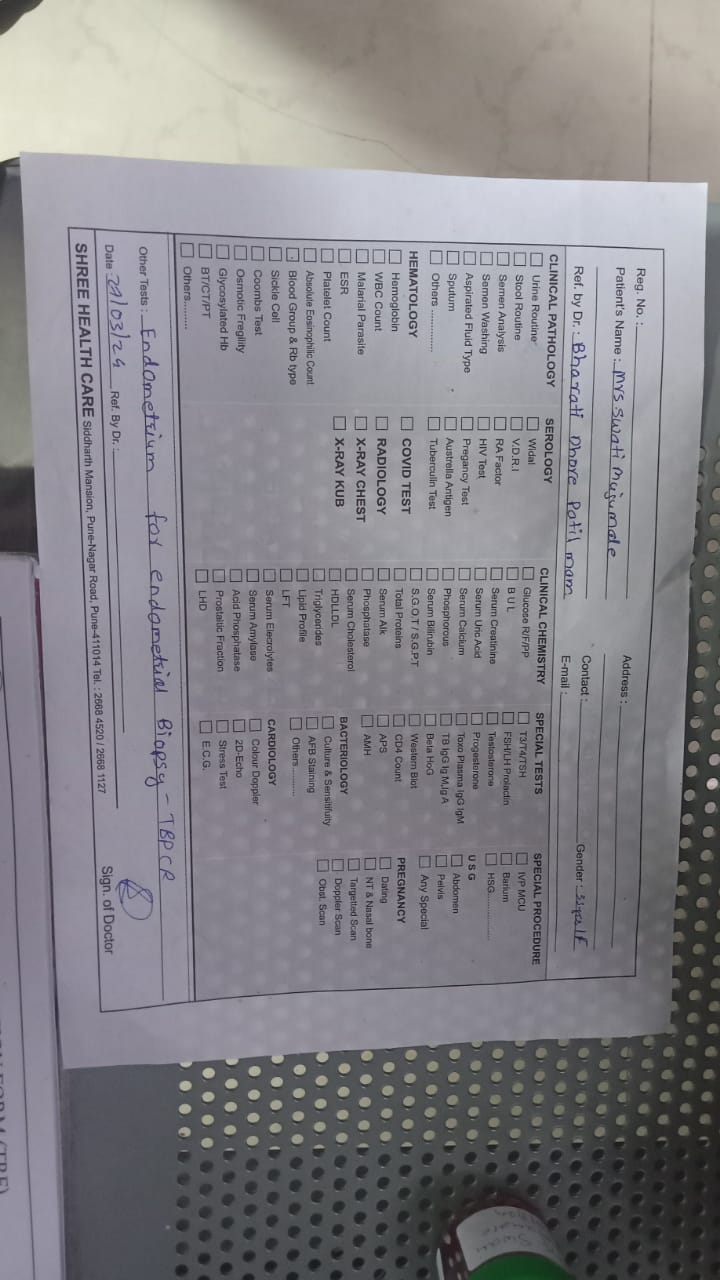 Reg. No. :
Patient's Name : Mrs Swati Mujumale
Address :
Contact : Gender : 33yrs/F
Ref. by Dr. : Bharati Dhore Patil mam
E-mail :
CLINICAL PATHOLOGY
Urine Routine
Stool Routine
Semen Analysis
Semen Washing
Aspirated Fluid Type
Sputum
Others ...............
HEMATOLOGY
Hemoglobin
WBC Count
Malarial Parasite
ESR
Platelet Count
Absolute Eosinophilic Count
Blood Group & Rb type
Sickle Cell
Coombs Test
Osmotic Fregility
Glycosylated Hb
BT/CT/PT
Others.........
SEROLOGY
Widal
V.D.R.I
RA Factor
HIV Test
Pregancy Test
Australia Antigen
Tuberculin Test
COVID TEST
RADIOLOGY
X-RAY CHEST
X-RAY KUB
CLINICAL CHEMISTRY
Glucose R/F/PP
B U L
Serum Creatinine
Serum Uric Acid
Serum Calcium
Phosphorous
Serum Bilirubin
S.G.O.T / S.G.P.T
Total Proteins
Serum Alk
Phosphatase
Serum Cholesterol
HDLLDL
Triglycerides
Lipid Profile
LFT
Serum Elecrolytes
Serum Amylase
Acid Phosphatase
Prostaitic Fraction
LHD
SPECIAL TESTS
T3/T4/TSH
FSH/LH Prolactin
Testosterone
Progesterone
Toxo Plasma IgG IgM
TB IgG Ig M,Ig A
Beta HoG
Western Blot
CD4 Count
APS
AMH
BACTERIOLOGY
Culture & Sensitifuity
AFB Staining
Others ...........
CARDIOLOGY
Colour Doppler
2D-Echo
Stress Test
E.C.G.
SPECIAL PROCEDURE
IVP MCU
Barium
HSG....................
U S G
Abdomen
Pelvis
Any Special
PREGNANCY
Dating
NT & Nasal bone
Targetted Scan
Doppler Scan
Obst. Scan
Other Tests : Endometrium for endometrial Biopsy - TBPCR
Date 29/03/24 Ref. By Dr. : Sign. of Doctor
SHREE HEALTH CARE Siddharth Mansion, Pune-Nagar Road, Pune-411014 Tel. : 2668 4520 / 2668 1127